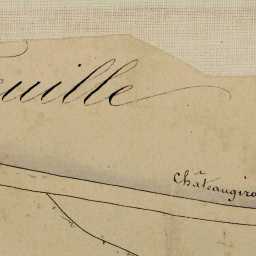 euille
Châteaugiro